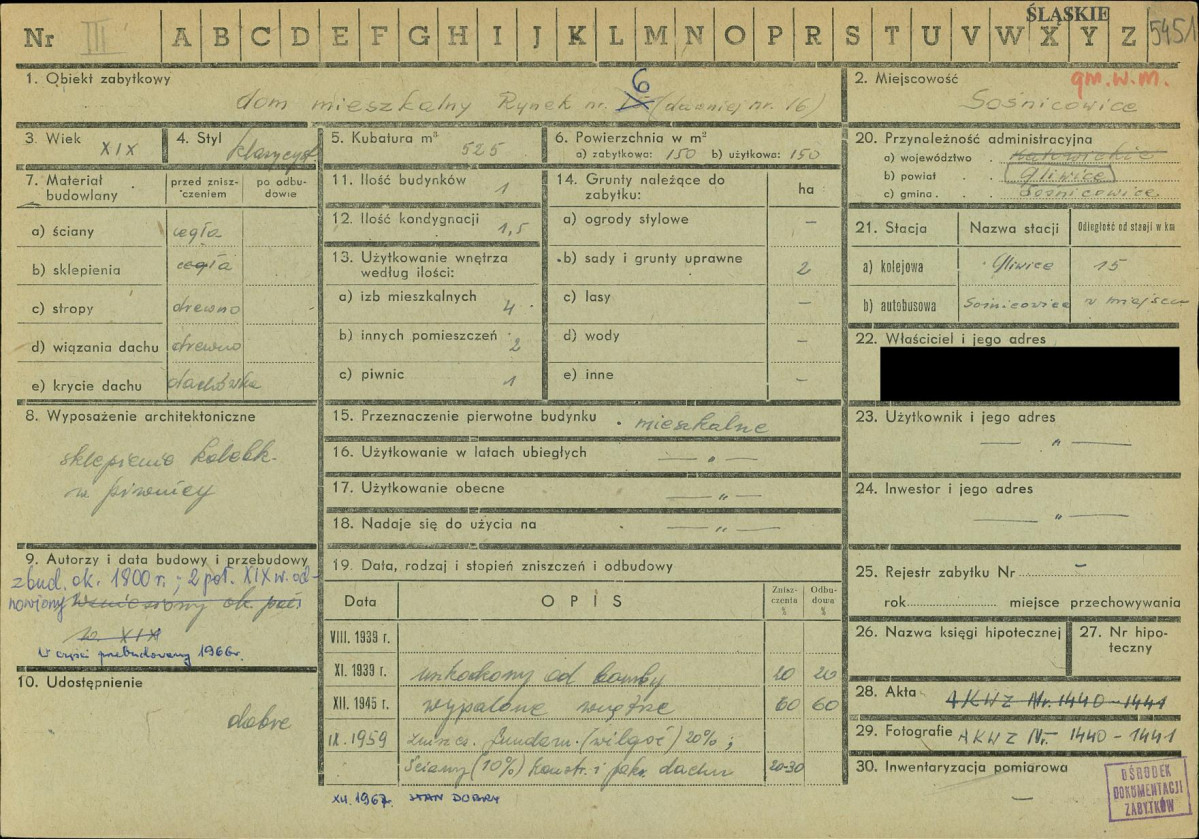 ŚLĄSKIE
Nr III A B C D E F G H I J K L M N O P R S T U V W X Y Z 5451
1. Obiekt zabytkowy
6
dom mieszkalny Rynek nr. (dawniej nr. 16)
2. Miejscowość
gm.w.m.
Sośnicowice
3. Wiek XIX
4. Styl klasycyst.
5. Kubatura m³ 525
6. Powierzchnia w m²
a) zabytkowa: 150 b) użytkowa: 150
20. Przynależność administracyjna
a) województwo . Katowickie
b) powiat . Gliwice
c) gmina . Sośnicowice
7. Materiał budowlany
przed znisz-
czeniem
po odbu-
dowie
a) ściany cegła
b) sklepienia cegła
c) stropy drewno
d) wiązania dachu drewno
e) krycie dachu dachówka
11. Ilość budynków 1
12. Ilość kondygnacji 1,5
13. Użytkowanie wnętrza
według ilości:
a) izb mieszkalnych 4
b) innych pomieszczeń 2
c) piwnic 1
14. Grunty należące do
zabytku: ha
a) ogrody stylowe –
b) sady i grunty uprawne 2
c) lasy –
d) wody –
e) inne –
21. Stacja Nazwa stacji Odległość od stacji w km
a) kolejowa Gliwice 15
b) autobusowa Sośnicowice w miejscu
22. Właściciel i jego adres
8. Wyposażenie architektoniczne
sklepienie kolebk.
w piwnicy
15. Przeznaczenie pierwotne budynku mieszkalne
16. Użytkowanie w latach ubiegłych — „ —
17. Użytkowanie obecne — „ —
18. Nadaje się do użycia na — „ —
23. Użytkownik i jego adres
— „ —
24. Inwestor i jego adres
— „ —
9. Autorzy i data budowy i przebudowy
zbud. ok. 1800 r.; 2 poł. XIX w. od-
nowiony Wzniesiony ok. poł.
w. XIX
W części przebudowany 1966r.
10. Udostępnienie
dobre
19. Data, rodzaj i stopień zniszczeń i odbudowy
Data OPIS Znisz-
czenia
% Odbu-
dowa
%
VIII. 1939 r.
XI. 1939 r. uszkodzony od bomby 20 20
XII. 1945 r. wypalone wnętrze 60 60
IX. 1959 zniszcz. fundam. (wilgoć) 20%;
ściany (10%) konstr. i pokr. dachu 20-30
XII. 1967. STAN DOBRY
25. Rejestr zabytku Nr –
rok miejsce przechowywania
26. Nazwa księgi hipotecznej
27. Nr hipo-
teczny
28. Akta AKWZ Nr. 1440-1441
29. Fotografie AKWZ Nr. 1440-1441
30. Inwentaryzacja pomiarowa
–
OŚRODEK
DOKUMENTACJI
ZABYTKÓW